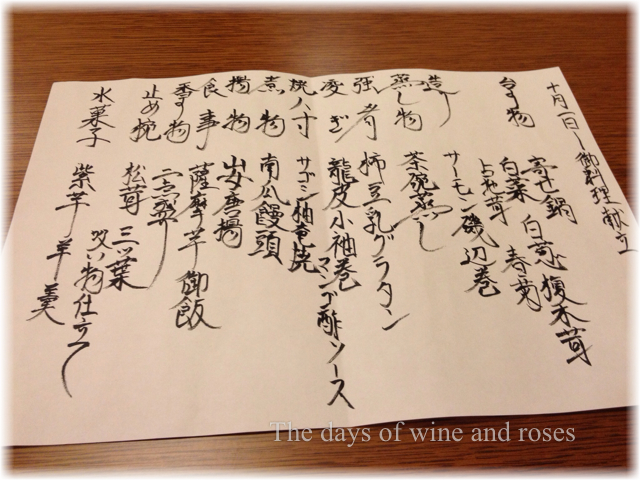 十月一日〜御料理献立
台の物
寄せ鍋 白葱 榎木茸
白菜 春菊
占地茸
造り
サーモン磯辺巻
蒸し物
茶碗蒸し
強肴
柿豆乳グラタン
凌ぎ
龍皮小袖巻
マンゴ酢ソース
焼八寸
サゴシ柚竜焼
煮物
南瓜饅頭
揚物
山女唐揚
食事
薩摩芋御飯
香の物
二点盛り
止め椀
松茸 三ッ葉
吸い物仕立て
水菓子
紫芋羊羹
The days of wine and roses